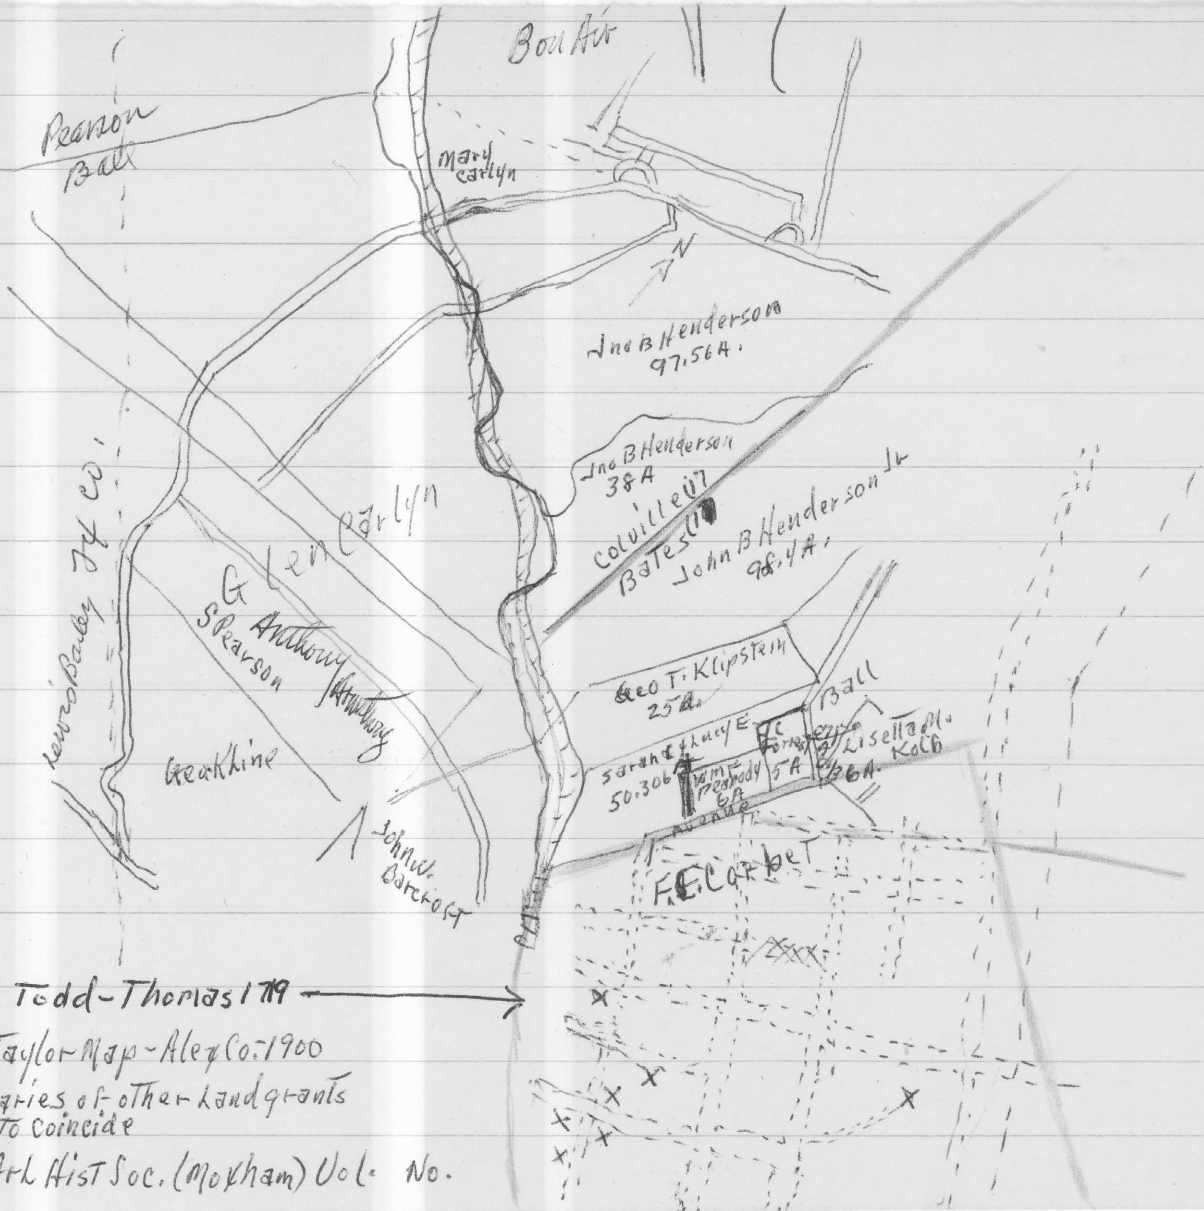 Bon Air
Pearson
Ball
Mary
Carlyn
N
Jno B Henderson
97.56 A.
Jno B Henderson
38 A
Colville
Bates
John B Henderson Jr
98.4 A.
Glen Carlyn
Lewis Bailey 74 Co.
Anthony
Anthony
S Pearson
Geo T. Klipstein
25 A.
Ball
Sarah & Lucy E
50.306 A
Wm F
Peabody
6 A
5 A
Lisetta M.
Kolb
36 A.
Avenue
F.E. Corbet
John W.
Barcroft
Todd-Thomas 1719
Taylor Map - Alex Co. 1900
aries of other Land grants
To coincide
Arl Hist Soc. (Moxham) Vol. No.